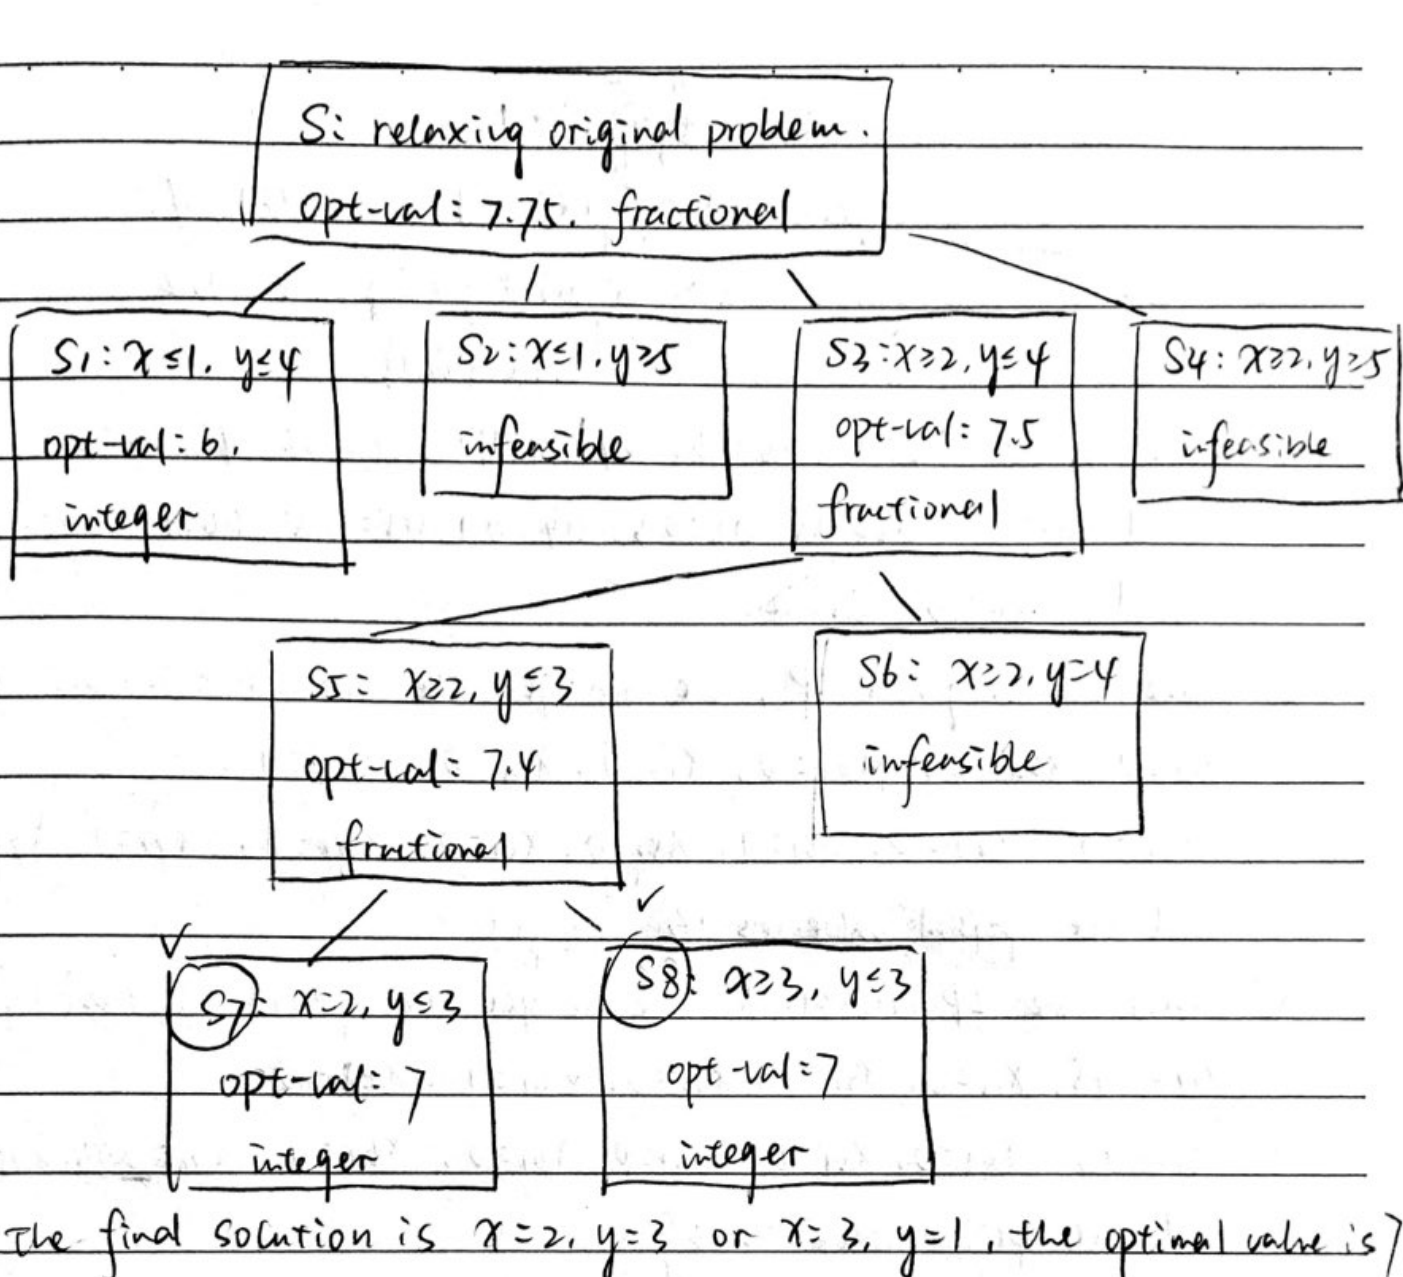 S: relaxing original problem.
opt-val: 7.75. fractional
S1: x≤1, y≤4
opt-val: 6.
integer
S2: x≤1, y≥5
infeasible
S3: x≥2, y≤4
opt-val: 7.5
fractional
S4: x≥2, y≥5
infeasible
S5: x≥2, y≤3
opt-val: 7.4
fractional
S6: x≥2, y=4
infeasible
✓
S7: x=2, y≤3
opt-val: 7
integer
✓
S8: x≥3, y≤3
opt-val=7
integer
The final solution is x=2, y=3 or x=3, y=1, the optimal value is 7